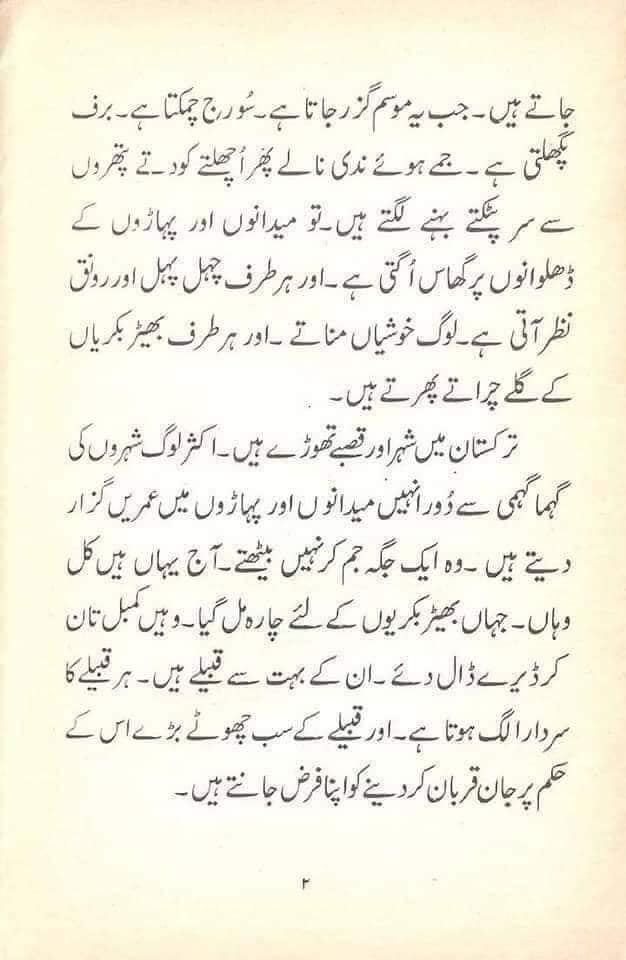 جاتے ہیں۔ جب یہ موسم گزر جاتا ہے۔ سُورج چمکتا ہے۔ برف
پگھلتی ہے۔ جمے ہوئے ندی نالے پھر اُچھلتے کودتے پتھروں
سے سر پٹکتے بہنے لگتے ہیں۔ تو میدانوں اور پہاڑوں کے
ڈھلوانوں پر گھاس اُگتی ہے۔ اور ہر طرف چہل پہل اور رونق
نظر آتی ہے۔ لوگ خوشیاں مناتے ۔ اور ہر طرف بھیڑ بکریاں
کے گلے چراتے پھرتے ہیں۔
ترکستان میں شہر اور قصبے تھوڑے ہیں۔ اکثر لوگ شہروں کی
گہما گہمی سے دُور انہیں میدانوں اور پہاڑوں میں عمریں گزار
دیتے ہیں ۔ وہ ایک جگہ جم کر نہیں بیٹھتے۔ آج یہاں ہیں کل
وہاں۔ جہاں بھیڑ بکریوں کے لئے چارہ مل گیا۔ وہیں کمبل تان
کر ڈیرے ڈال دئے ۔ ان کے بہت سے قبیلے ہیں۔ ہر قبیلے کا
سردار الگ ہوتا ہے۔ اور قبیلے کے سب چھوٹے بڑے اس کے
حکم پر جان قربان کر دینے کو اپنا فرض جانتے ہیں۔
۲